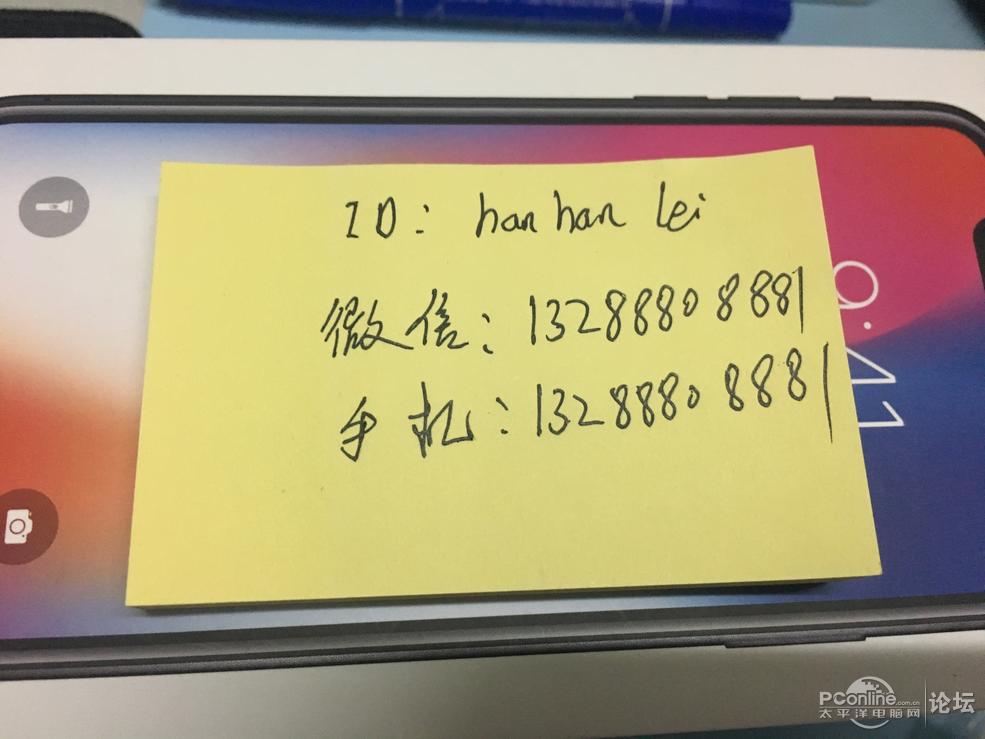 ID: hanhan lei
微信: 13288808881
手机: 13288808881
9:41
PConline.com.cn
太平洋电脑网 论坛